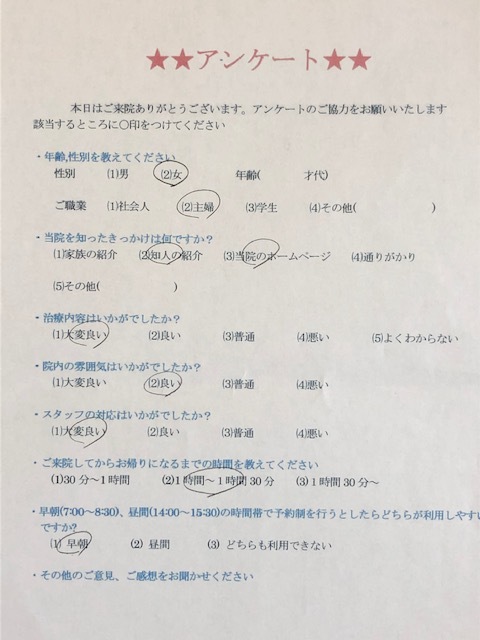 ★★アンケート★★
本日はご来院ありがとうございます。アンケートのご協力をお願いいたします
該当するところに〇印をつけてください
・年齢,性別を教えてください
性別 (1)男 (2)女 年齢( 才代)
ご職業 (1)社会人 (2)主婦 (3)学生 (4)その他( )
・当院を知ったきっかけは何ですか？
(1)家族の紹介 (2)知人の紹介 (3)当院のホームページ (4)通りがかり
(5)その他( )
・治療内容はいかがでしたか？
(1)大変良い (2)良い (3)普通 (4)悪い (5)よくわからない
・院内の雰囲気はいかがでしたか？
(1)大変良い (2)良い (3)普通 (4)悪い
・スタッフの対応はいかがでしたか？
(1)大変良い (2)良い (3)普通 (4)悪い
・ご来院してからお帰りになるまでの時間を教えてください
(1)30 分～1 時間 (2)1 時間～1 時間 30 分 (3)1 時間 30 分～
・早朝(7:00～8:30)、昼間(14:00～15:30)の時間帯で予約制を行うとしたらどちらが利用しやすい
ですか？
(1) 早朝 (2) 昼間 (3) どちらも利用できない
・その他のご意見、ご感想をお聞かせください